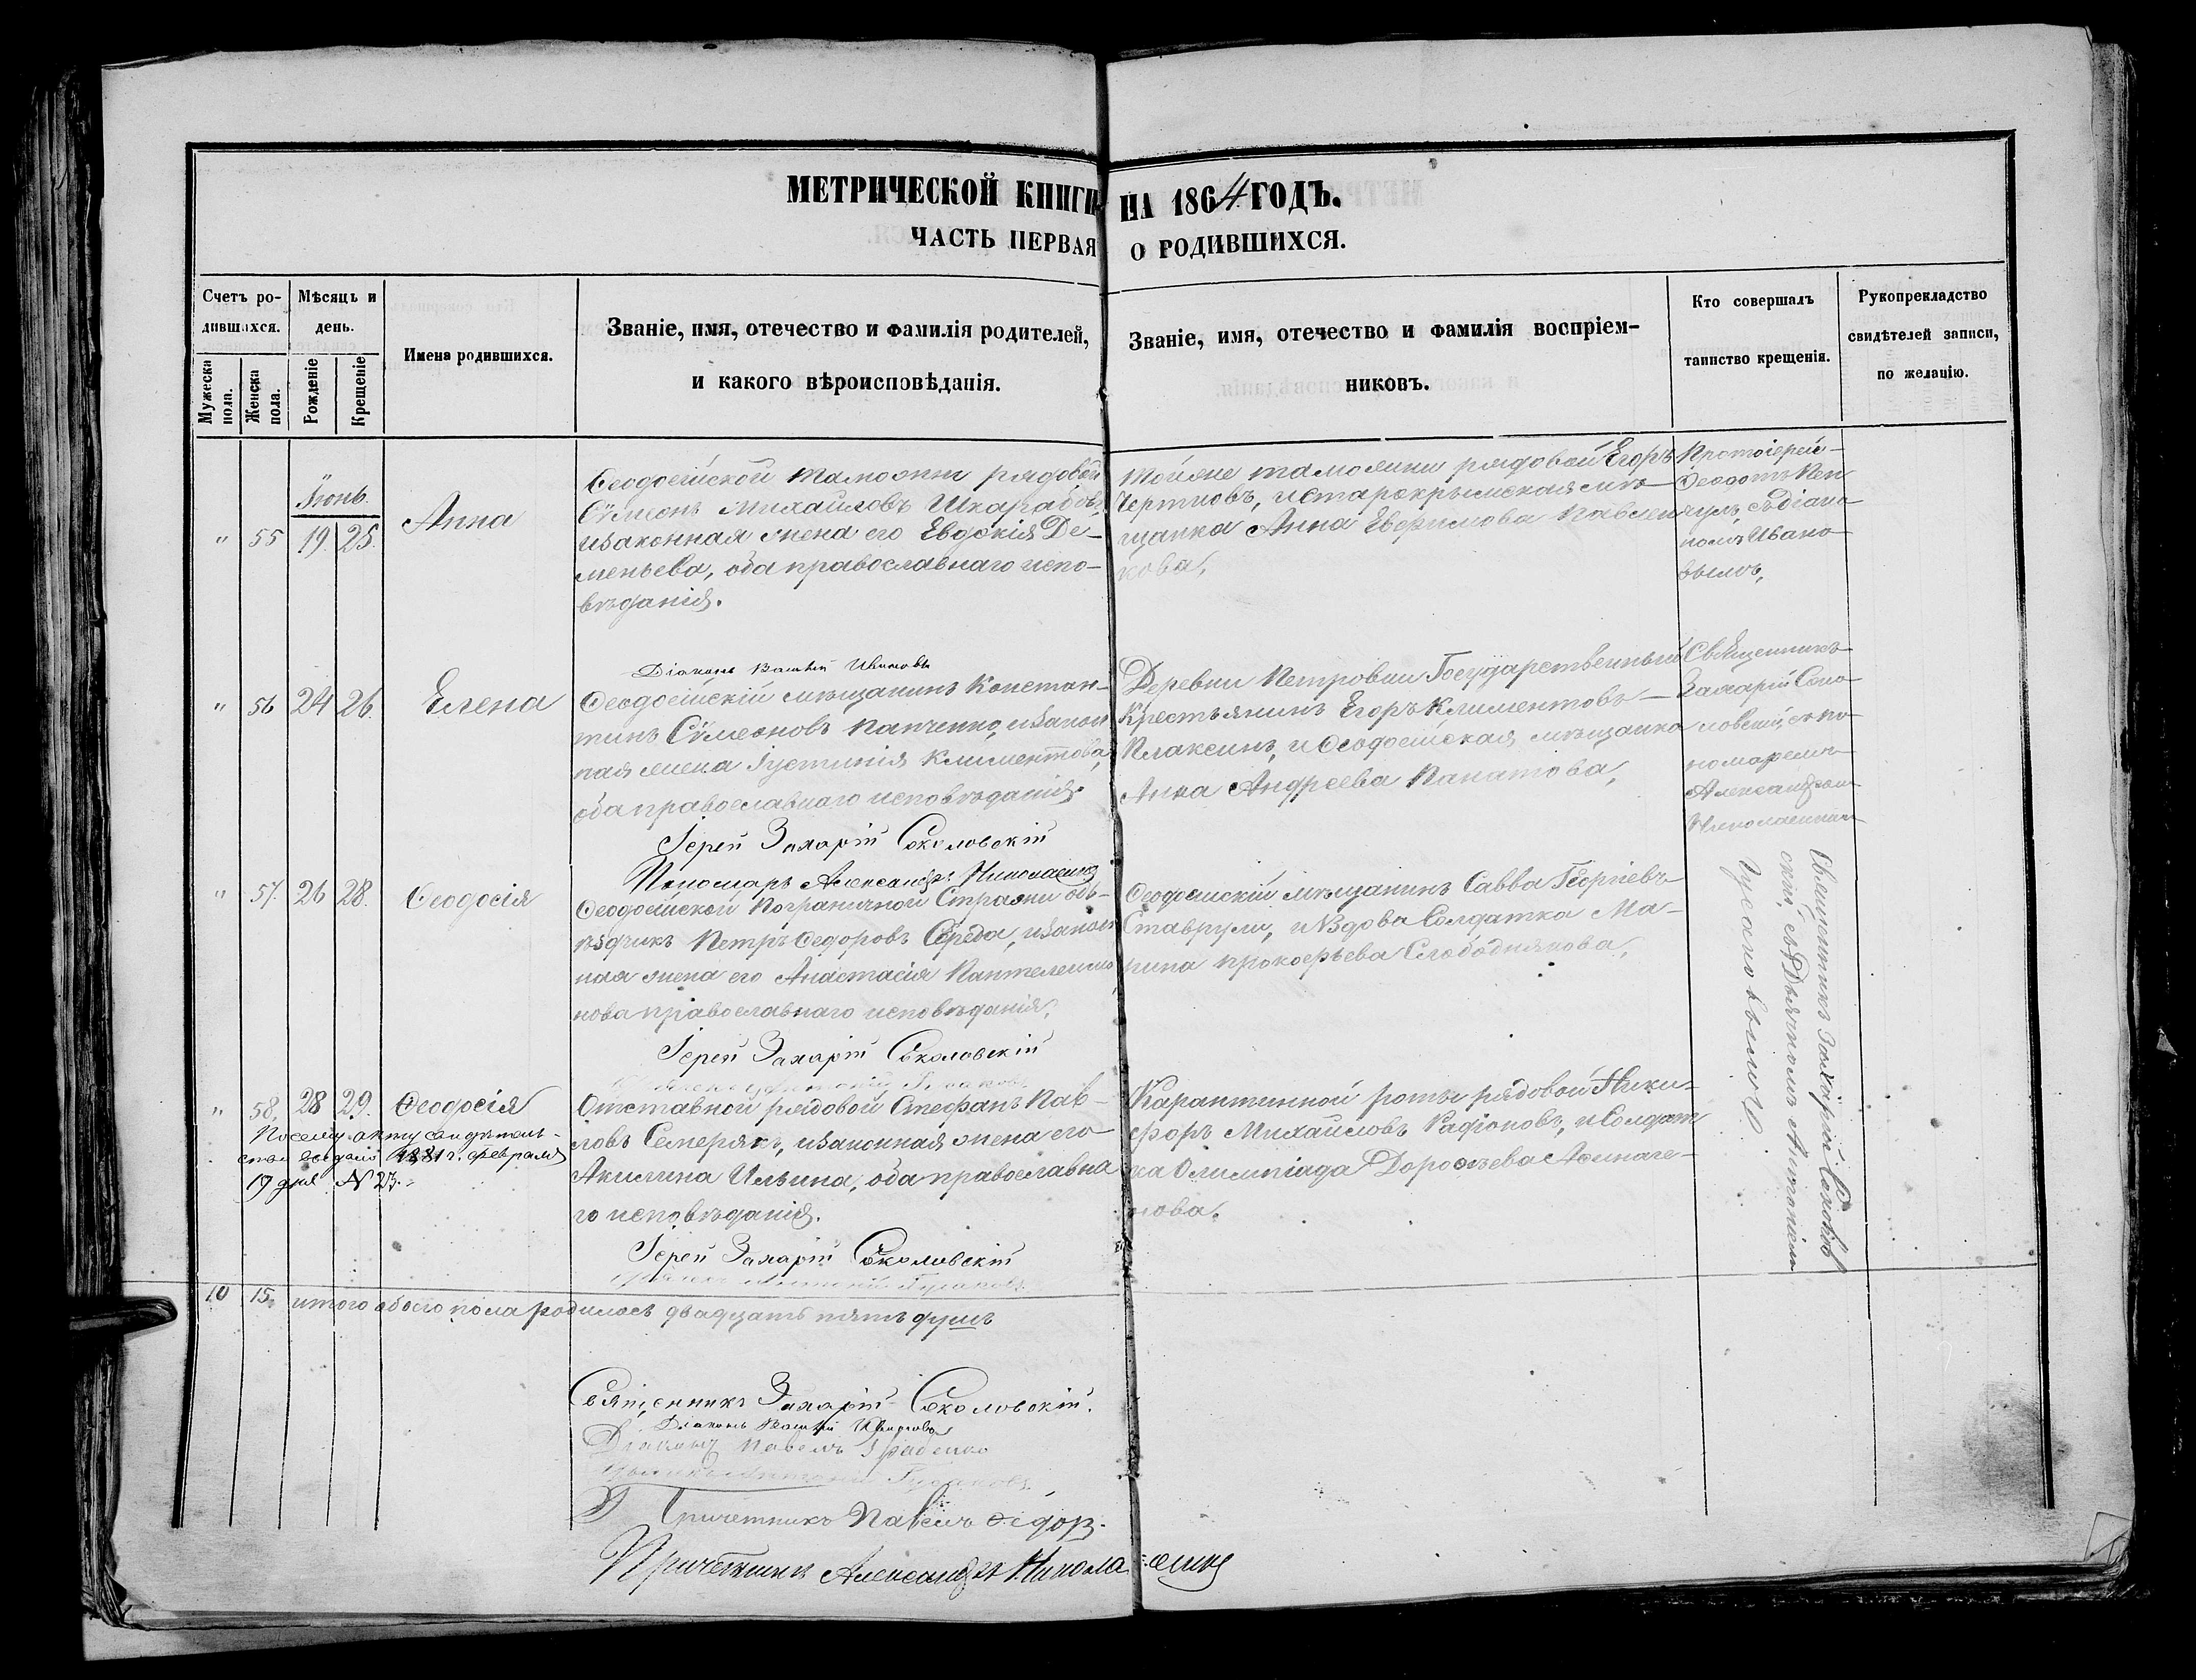 МЕТРИЧЕСКОЙ КНИГИ НА 1864 ГОДЪ.
ЧАСТЬ ПЕРВАЯ О РОДИВШИХСЯ.
Счетъ ро-
дившихся.
Мужеска
пола.
Женска
пола.
Мѣсяць и
день.
Рожденіе
Крещеніе
Имена родившихся.
Званіе, имя, отечество и фамилія родителей,
и какого вѣроисповѣданія.
Званіе, имя, отечество и фамилія воспріем-
никовъ.
Кто совершалъ
таинство крещенія.
Рукопрекладство
свидѣтелей записи,
по желанію.
Іюнь.
" 55 19. 25.
Анна
Ѳеодосійской Таможни рядовой
Сѵмеонъ Михайловъ Шкарабовъ,
изаконная жена его Евдокія Де-
меньева, оба православнаго испо-
вѣданія.
Тойже таможни рядовой Егоръ
Чертновъ, истарокрымская мѣ-
щанка Анна Евфимова Павлен-
кова,
Протоіерей
Ѳеодотъ
съ діако-
номъ Ивано-
вымъ,
Діаконъ Ивановъ
" 56 24 26.
Елена
Ѳеодосійскій мѣщанинъ Констан-
тинъ Сѵмеоновъ Панченко, изакон
ная жена Іустинія Климентова,
оба православнаго исповѣданія.
Іерей Захарій Соколовскій
Пономарь Александръ Николаенко
Деревни Петровки Государственный
Крестьянинъ Егоръ Климентовъ
Плаксинъ, и Ѳеодосійская мѣщанка
Анна Андреева Панатова,
Священникъ
Захарій Соко-
ловскій, съ по-
номаремъ
Александромъ
Николаенкомъ
" 57. 26 28.
Ѳеодосія
Ѳеодосійской Пограничной Стражи объ-
ѣздчикъ Петръ Ѳедоровъ Середа, изакон
ная жена его Анастасія Пантелеимо
нова православнаго исповѣданія,
Іерей Захарій Соколовскій
Ѳеодосійскій мѣщанинъ Савва Георгіевъ
Ставрули, и Вдова Солдатка Ма-
рина Прокофьева Слободнякова,
Священникъ Захарій Соколов
скій, съ Дьячкомъ Антоніемъ
Гусаковымъ
" 58. 28 29. Ѳеодосія
Посему акту свидѣтель-
ство выдано 1881 г. февраля
19 дня N 27.
Отставной рядовой Стефанъ Пав-
ловъ Семерякъ, изаконная жена его
Акилина Ильина, оба православна
го исповѣданія.
Іерей Захарій Соколовскій
Карантинной роты рядовой Ники-
форъ Михайловъ Радіоновъ, и Солдат
ка Олимпіада Дороѳеева
нова.
10 15. итого обоего пола родилось двадцать пять душъ
Священникъ Захарій Соколовскій.
Діаконъ Ивановъ
Діаконъ Павелъ Грабенко
Причетникъ Павелъ
Причетникъ Александръ Николаенко